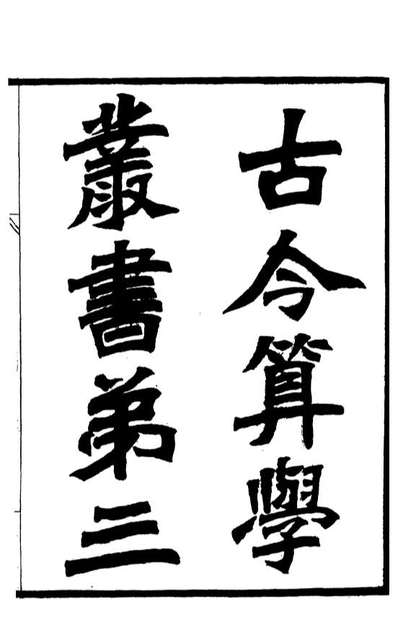 古今算學
叢書弟三